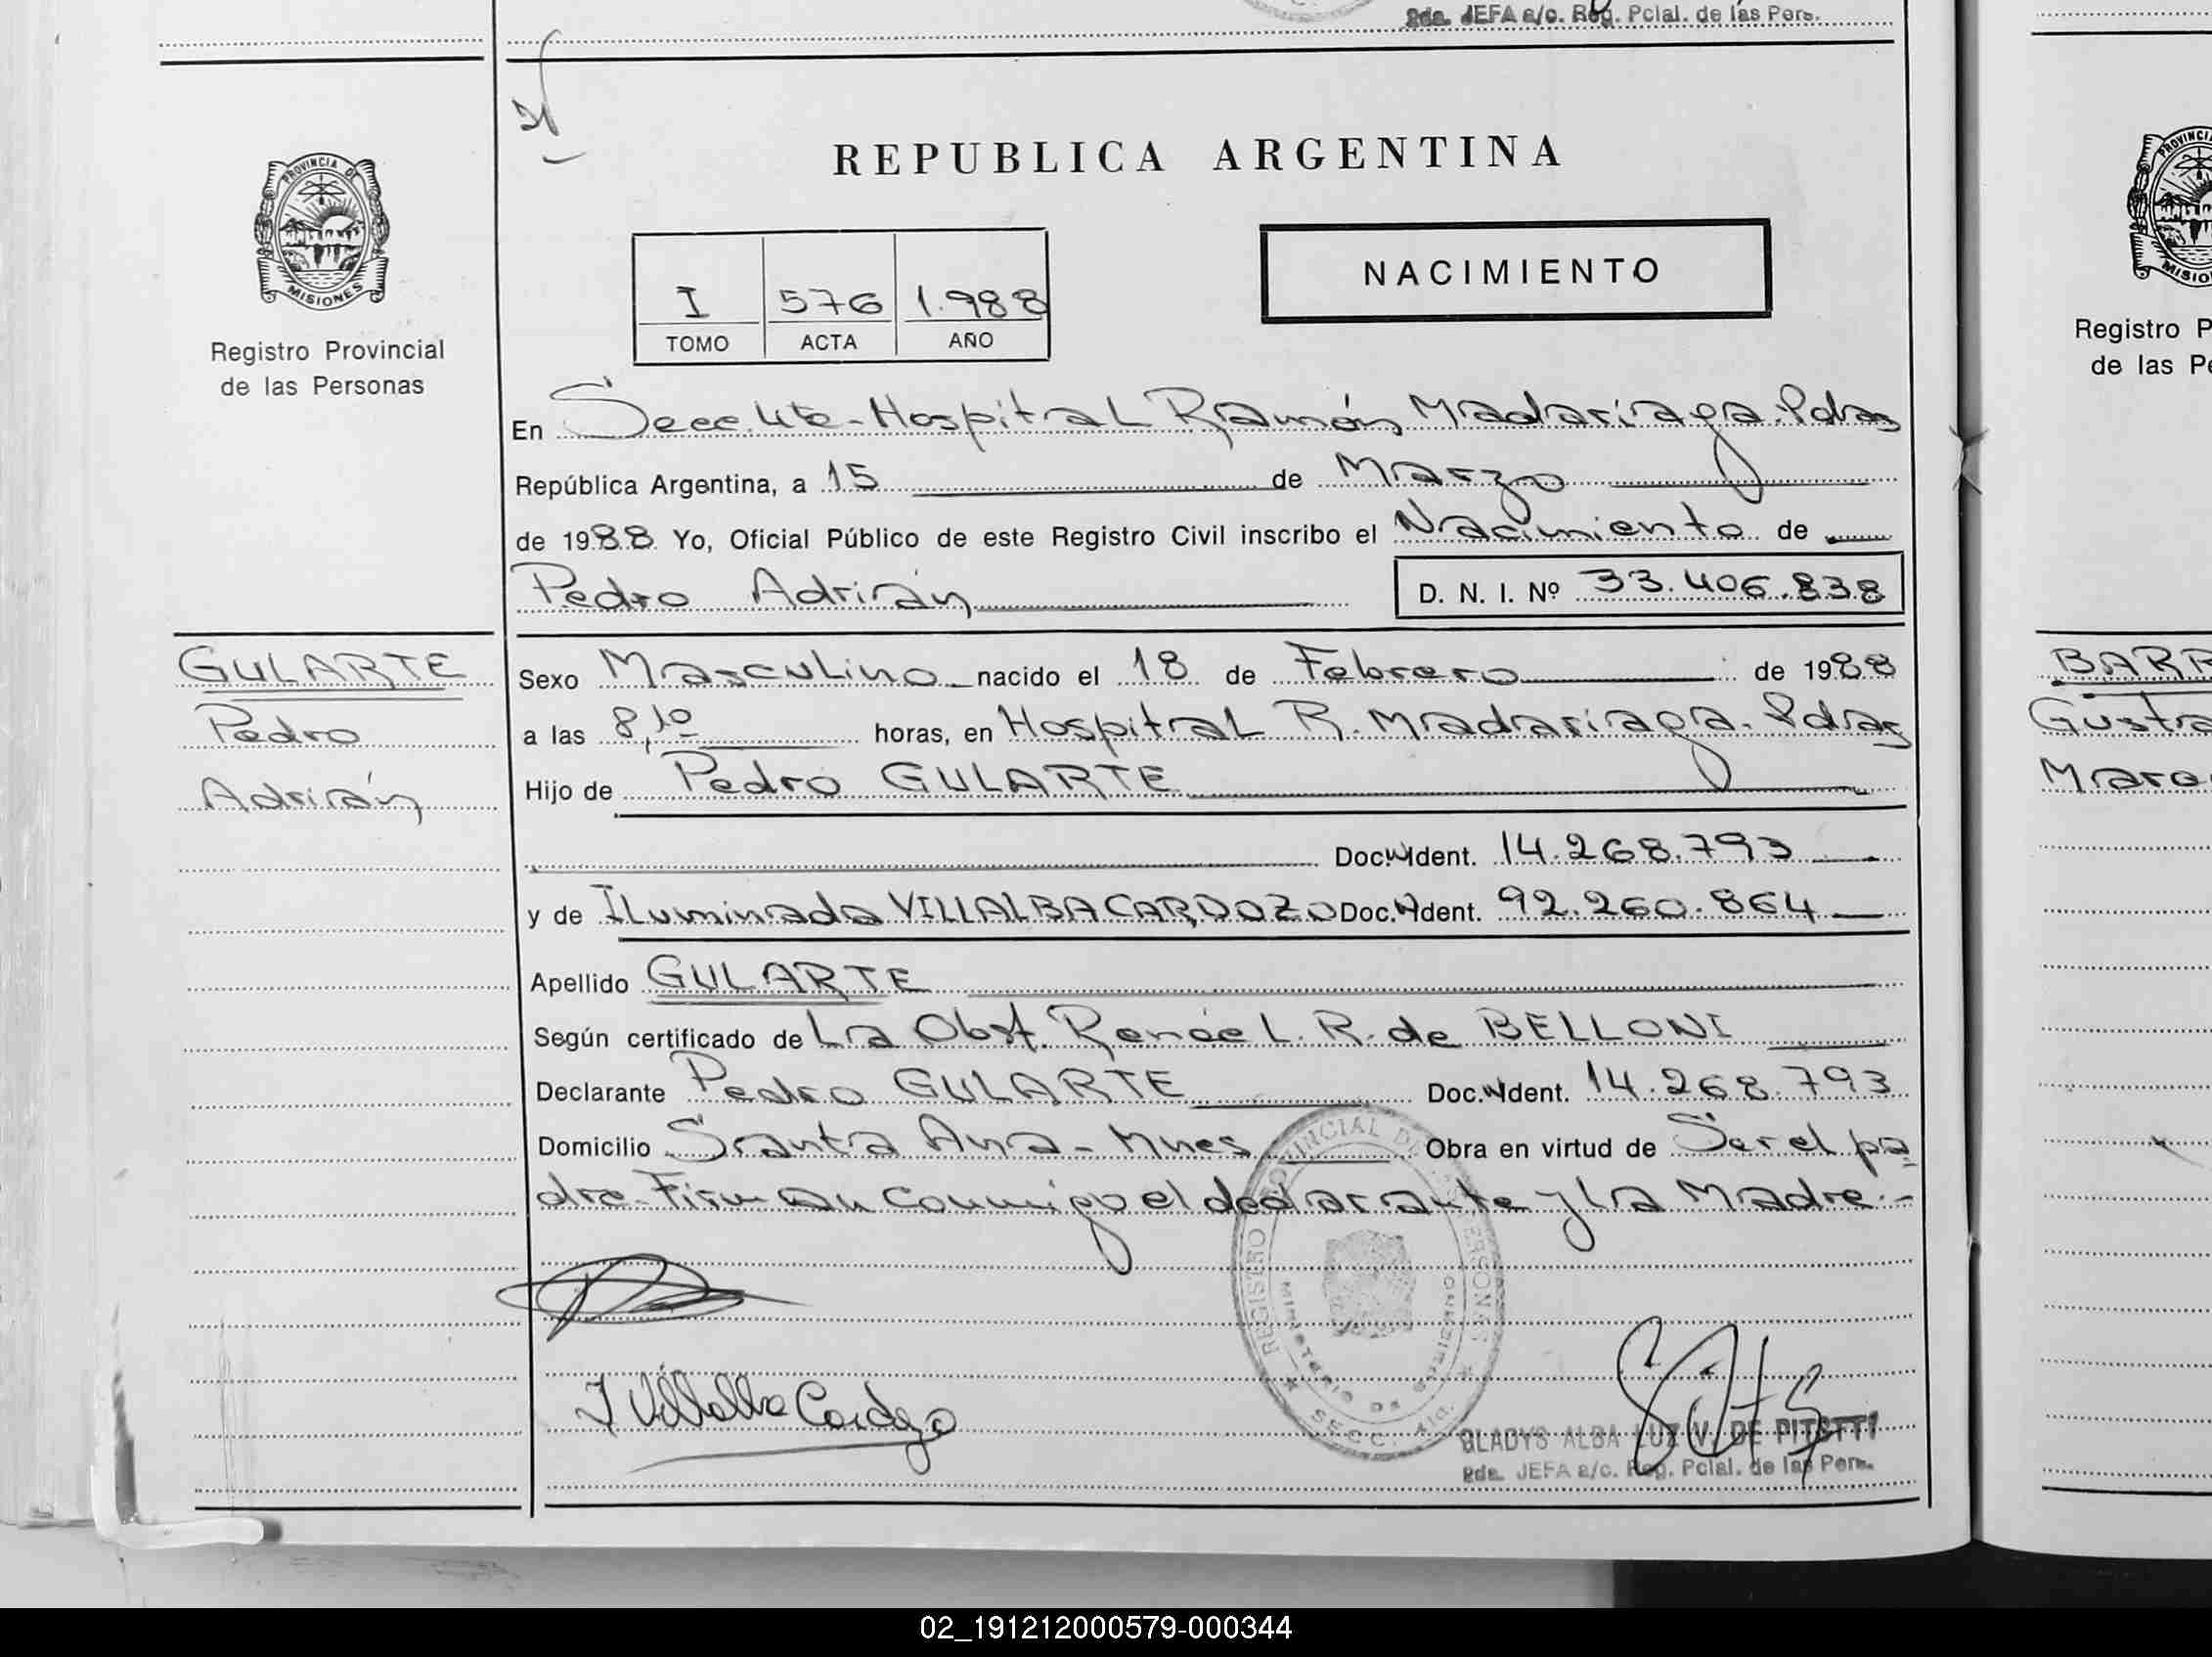 2da. JEFA a/c. Reg. Pcial. de las Pers.
PROVINCIA DE
MISIONES
Registro Provincial
de las Personas
REPUBLICA ARGENTINA
I 576 1.988
TOMO ACTA AÑO
NACIMIENTO
En Secc. 4ta - Hospital Ramón Madariaga. Pdas
República Argentina, a 15 de Marzo
de 1988 Yo, Oficial Público de este Registro Civil inscribo el Nacimiento de
Pedro Adrián
D. N. I. Nº 33.406.838
GULARTE
Pedro
Adrián
Sexo Masculino nacido el 18 de Febrero de 1988
a las 8,10 horas, en Hospital R. Madariaga. Pdas
Hijo de Pedro GULARTE
Doc. Ident. 14.268.793
y de Iluminada VILLALBA CARDOZO Doc. Ident. 92.260.864
Apellido GULARTE
Según certificado de La Obst. Renée L. R. de BELLONI
Declarante Pedro GULARTE Doc. Ident. 14.268.793
Domicilio Santa Ana - Mnes Obra en virtud de Ser el pa-
dre. Firman conmigo el declarante y la Madre.-
REGISTRO PROVINCIAL DE LAS PERSONAS
MINISTERIO DE GOBIERNO
SECC. 4ta.
I Villalba Cardozo
GLADYS ALBA LUZ V. DE PITETTI
2da. JEFA a/c. Reg. Pcial. de las Pers.
PROVINCIA
MISIO
Registro P
de las Pe
BARR
Gusta
Marc
02_191212000579-000344